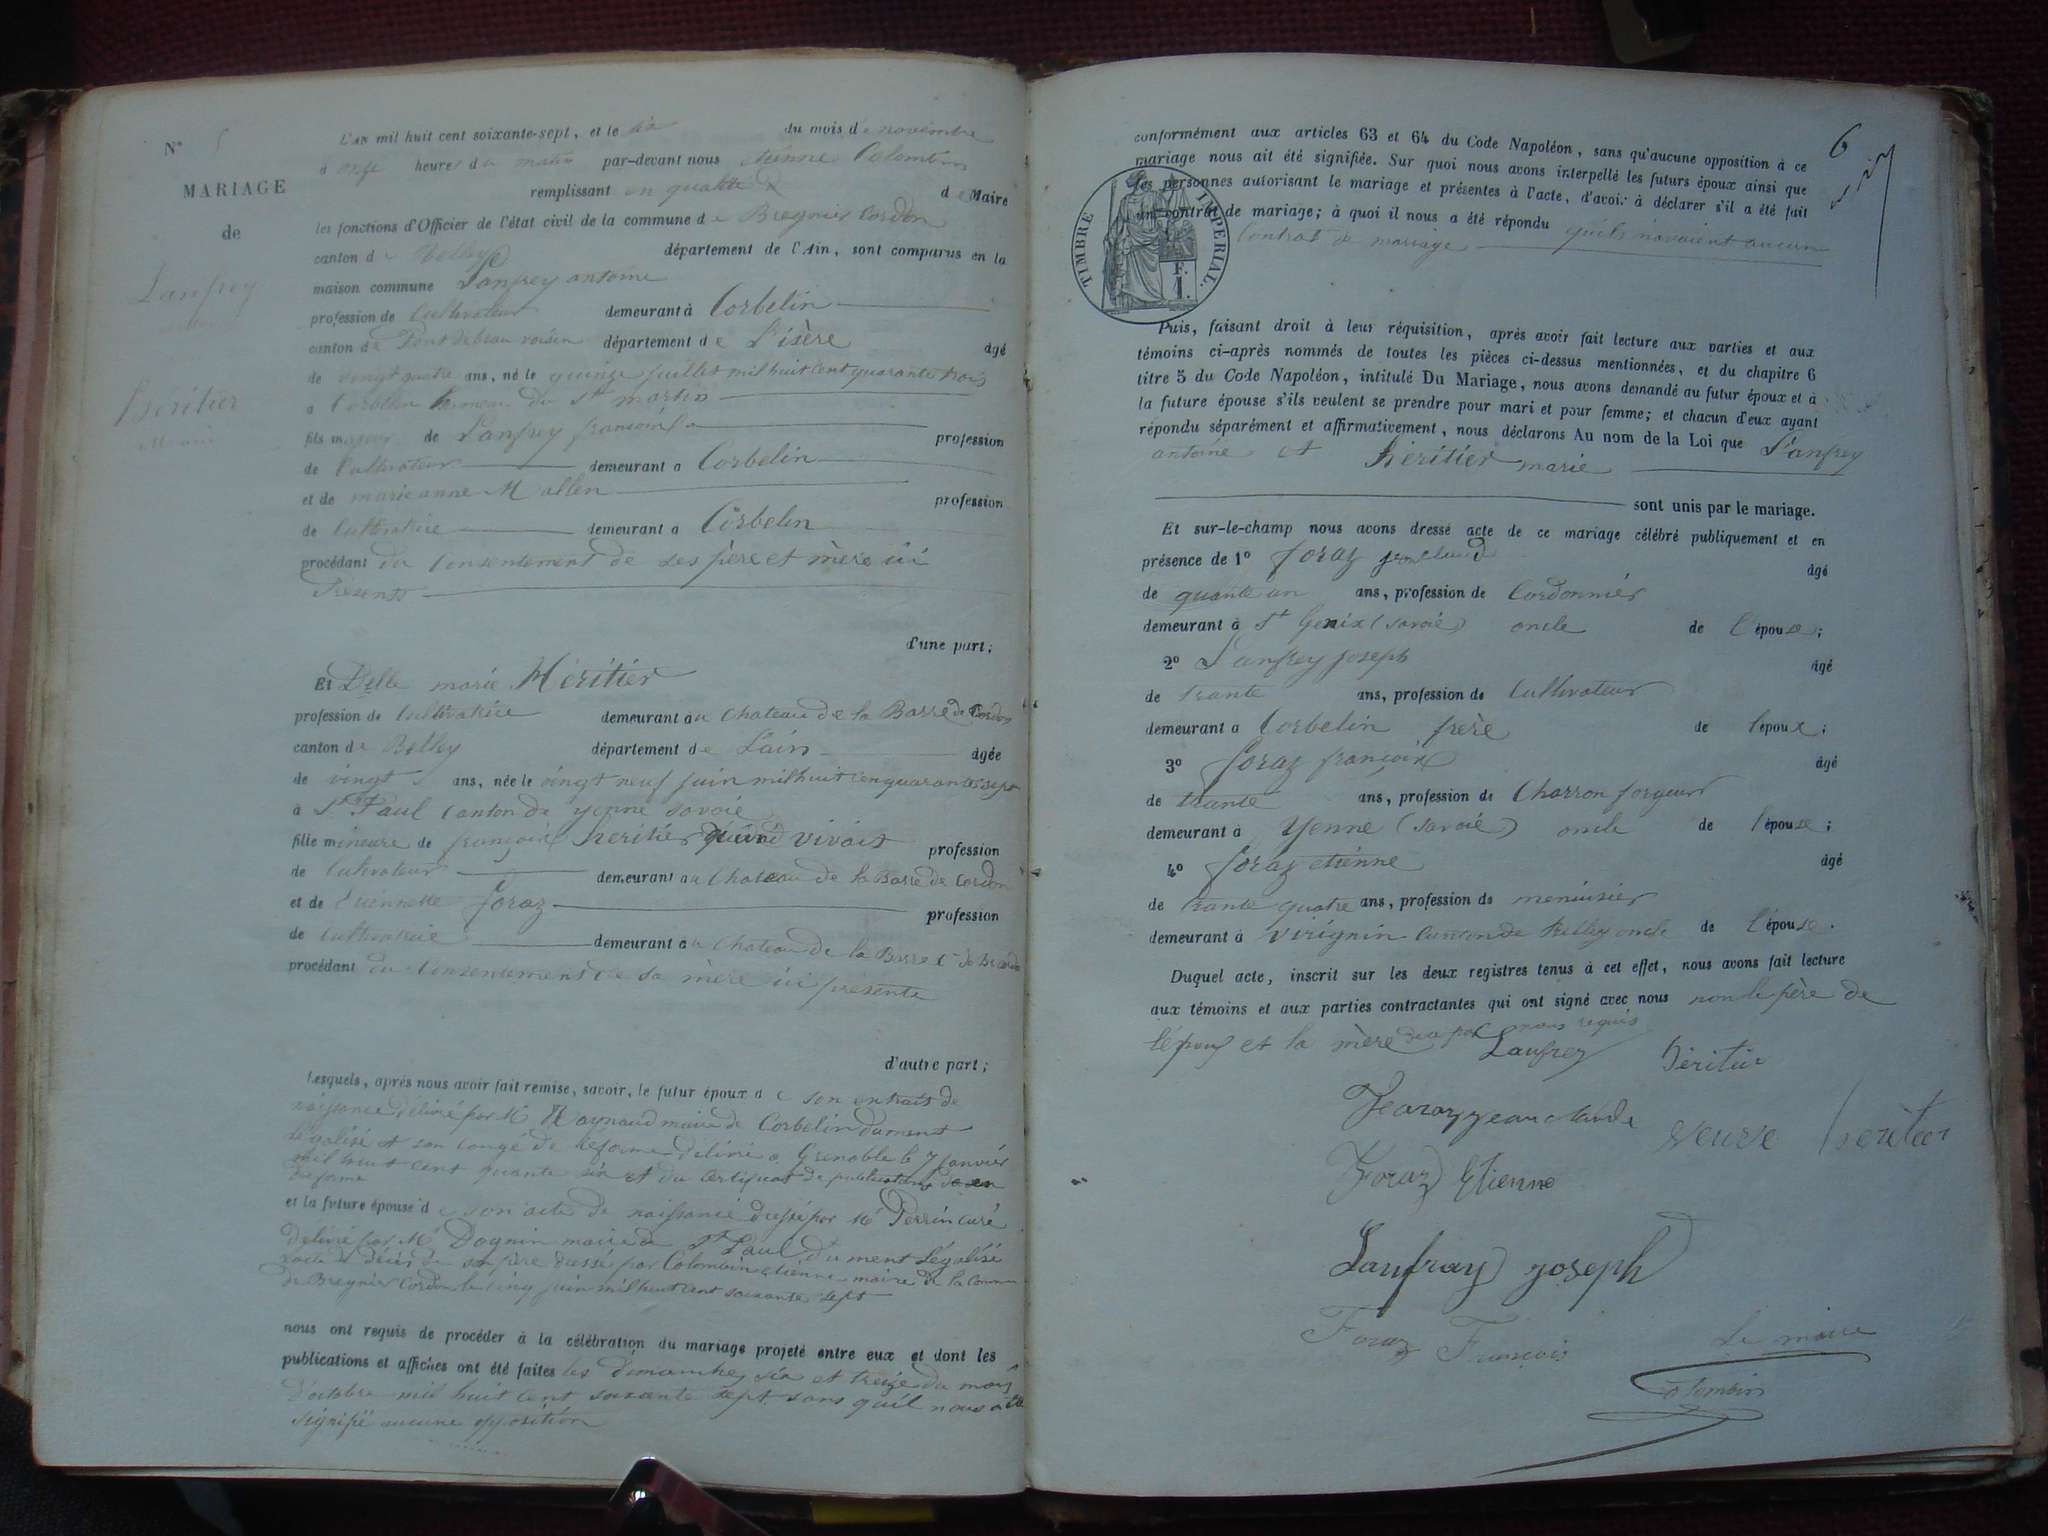 N° 5
MARIAGE
de
Lanfrey
antoine
héritier
Marie
L'AN mil huit cent soixante-sept, et le six du mois de novembre
à onze heures du matin par-devant nous etienne Colombin
remplissant en qualité de Maire
les fonctions d'Officier de l'état civil de la commune de Bregnier Cordon
canton de Belley département de l'Ain, sont comparus en la
maison commune Lanfrey antoine
profession de Cultivateur demeurant à Corbelin
canton de Pont de beau voisin département de L'isère âgé
de vingt quatre ans, né le quinze juillet mil huit cent quarante trois
à Corbelin hameau du St martin
fils majeur de Lanfrey françois profession
de Cultivateur demeurant à Corbelin
et de marie anne Mallen profession
de Cultivatrice demeurant à Corbelin
procédant du Consentement de ses père et mère ici
Présents
d'une part;
Et Delle marie Héritier
profession de Cultivatrice demeurant au Chateau de la Barre de Cordon
canton de Belley département de L'ain âgée
de vingt ans, née le vingt neuf juin mil huit cen quarante sept
à St Paul Canton de yenne savoie
fille mineure de françois heritier quand vivait profession
de Cultivateur demeurant au Chateau de la Barre de Cordon
et de Etiennette foraz profession
de Cultivatrice demeurant au Chateau de la Barre
procédant du Consentement de sa mère ici présente
d'autre part;
Lesquels, après nous avoir fait remise, savoir, le futur époux de son extrait de
naissance délivré par Mr Raynaud maire de Corbelin dument
légalisé et son congé de Reforme délivré a Grenoble le 7 janvier
mil huit cent quante six et du Certificat de publications
et la future épouse de son acte de naissance dressé par Mr Perrin curé
Délivré par Mr Dognin maire de St Paul dument Légalisé
L'acte de décès de son père dressé par Colombin etienne maire de la Commune
de Bregnier Cordon le cinq juin mil huit cent soixante sept
nous ont requis de procéder à la célébration du mariage projeté entre eux et dont les
publications et affiches ont été faites les dimanche six et treize du mois
D'octobre mil huit cent soixante sept sans qu'il nous a été
signifié aucune opposition
6
conformément aux articles 63 et 64 du Code Napoléon, sans qu'aucune opposition à ce
mariage nous ait été signifiée. Sur quoi nous avons interpellé les futurs époux ainsi que
les personnes autorisant le mariage et présentes à l'acte, d'avoir à déclarer s'il a été fait
un contrat de mariage; à quoi il nous a été répondu qu'ils n'avaient aucun
Contrat de mariage
TIMBRE IMPERIAL.
F.
1.
Puis, faisant droit à leur réquisition, après avoir fait lecture aux parties et aux
témoins ci-après nommés de toutes les pièces ci-dessus mentionnées, et du chapitre 6
titre 5 du Code Napoléon, intitulé Du Mariage, nous avons demandé au futur époux et à
la future épouse s'ils veulent se prendre pour mari et pour femme; et chacun d'eux ayant
répondu séparément et affirmativement, nous déclarons Au nom de la Loi que Lanfrey
antoine et héritier marie
sont unis par le mariage.
Et sur-le-champ nous avons dressé acte de ce mariage célébré publiquement et en
présence de 1° foraz jean claud âgé
de quante un ans, profession de Cordonnier
demeurant à St Genix (savoie) oncle de l'épouse;
2° Lanfrey joseph âgé
de trante ans, profession de Cultivateur
demeurant à Corbelin frère de l'époux;
3° foraz françois âgé
de trante ans, profession de Charron forgeur
demeurant à Yenne (savoie) oncle de l'épouse;
4° foraz etiénne âgé
de trante quatre ans, profession de menuisier
demeurant à virignin canton de Belley oncle de l'épouse.
Duquel acte, inscrit sur les deux registres tenus à cet effet, nous avons fait lecture
aux témoins et aux parties contractantes qui ont signé avec nous non le père de
l'époux et la mère de ce par nous requis
Lanfrey héritier
Foraz jean claude
veuve heritier
Foraz Etienne
Lanfray joseph
Foraz François
Le maire
Colombin